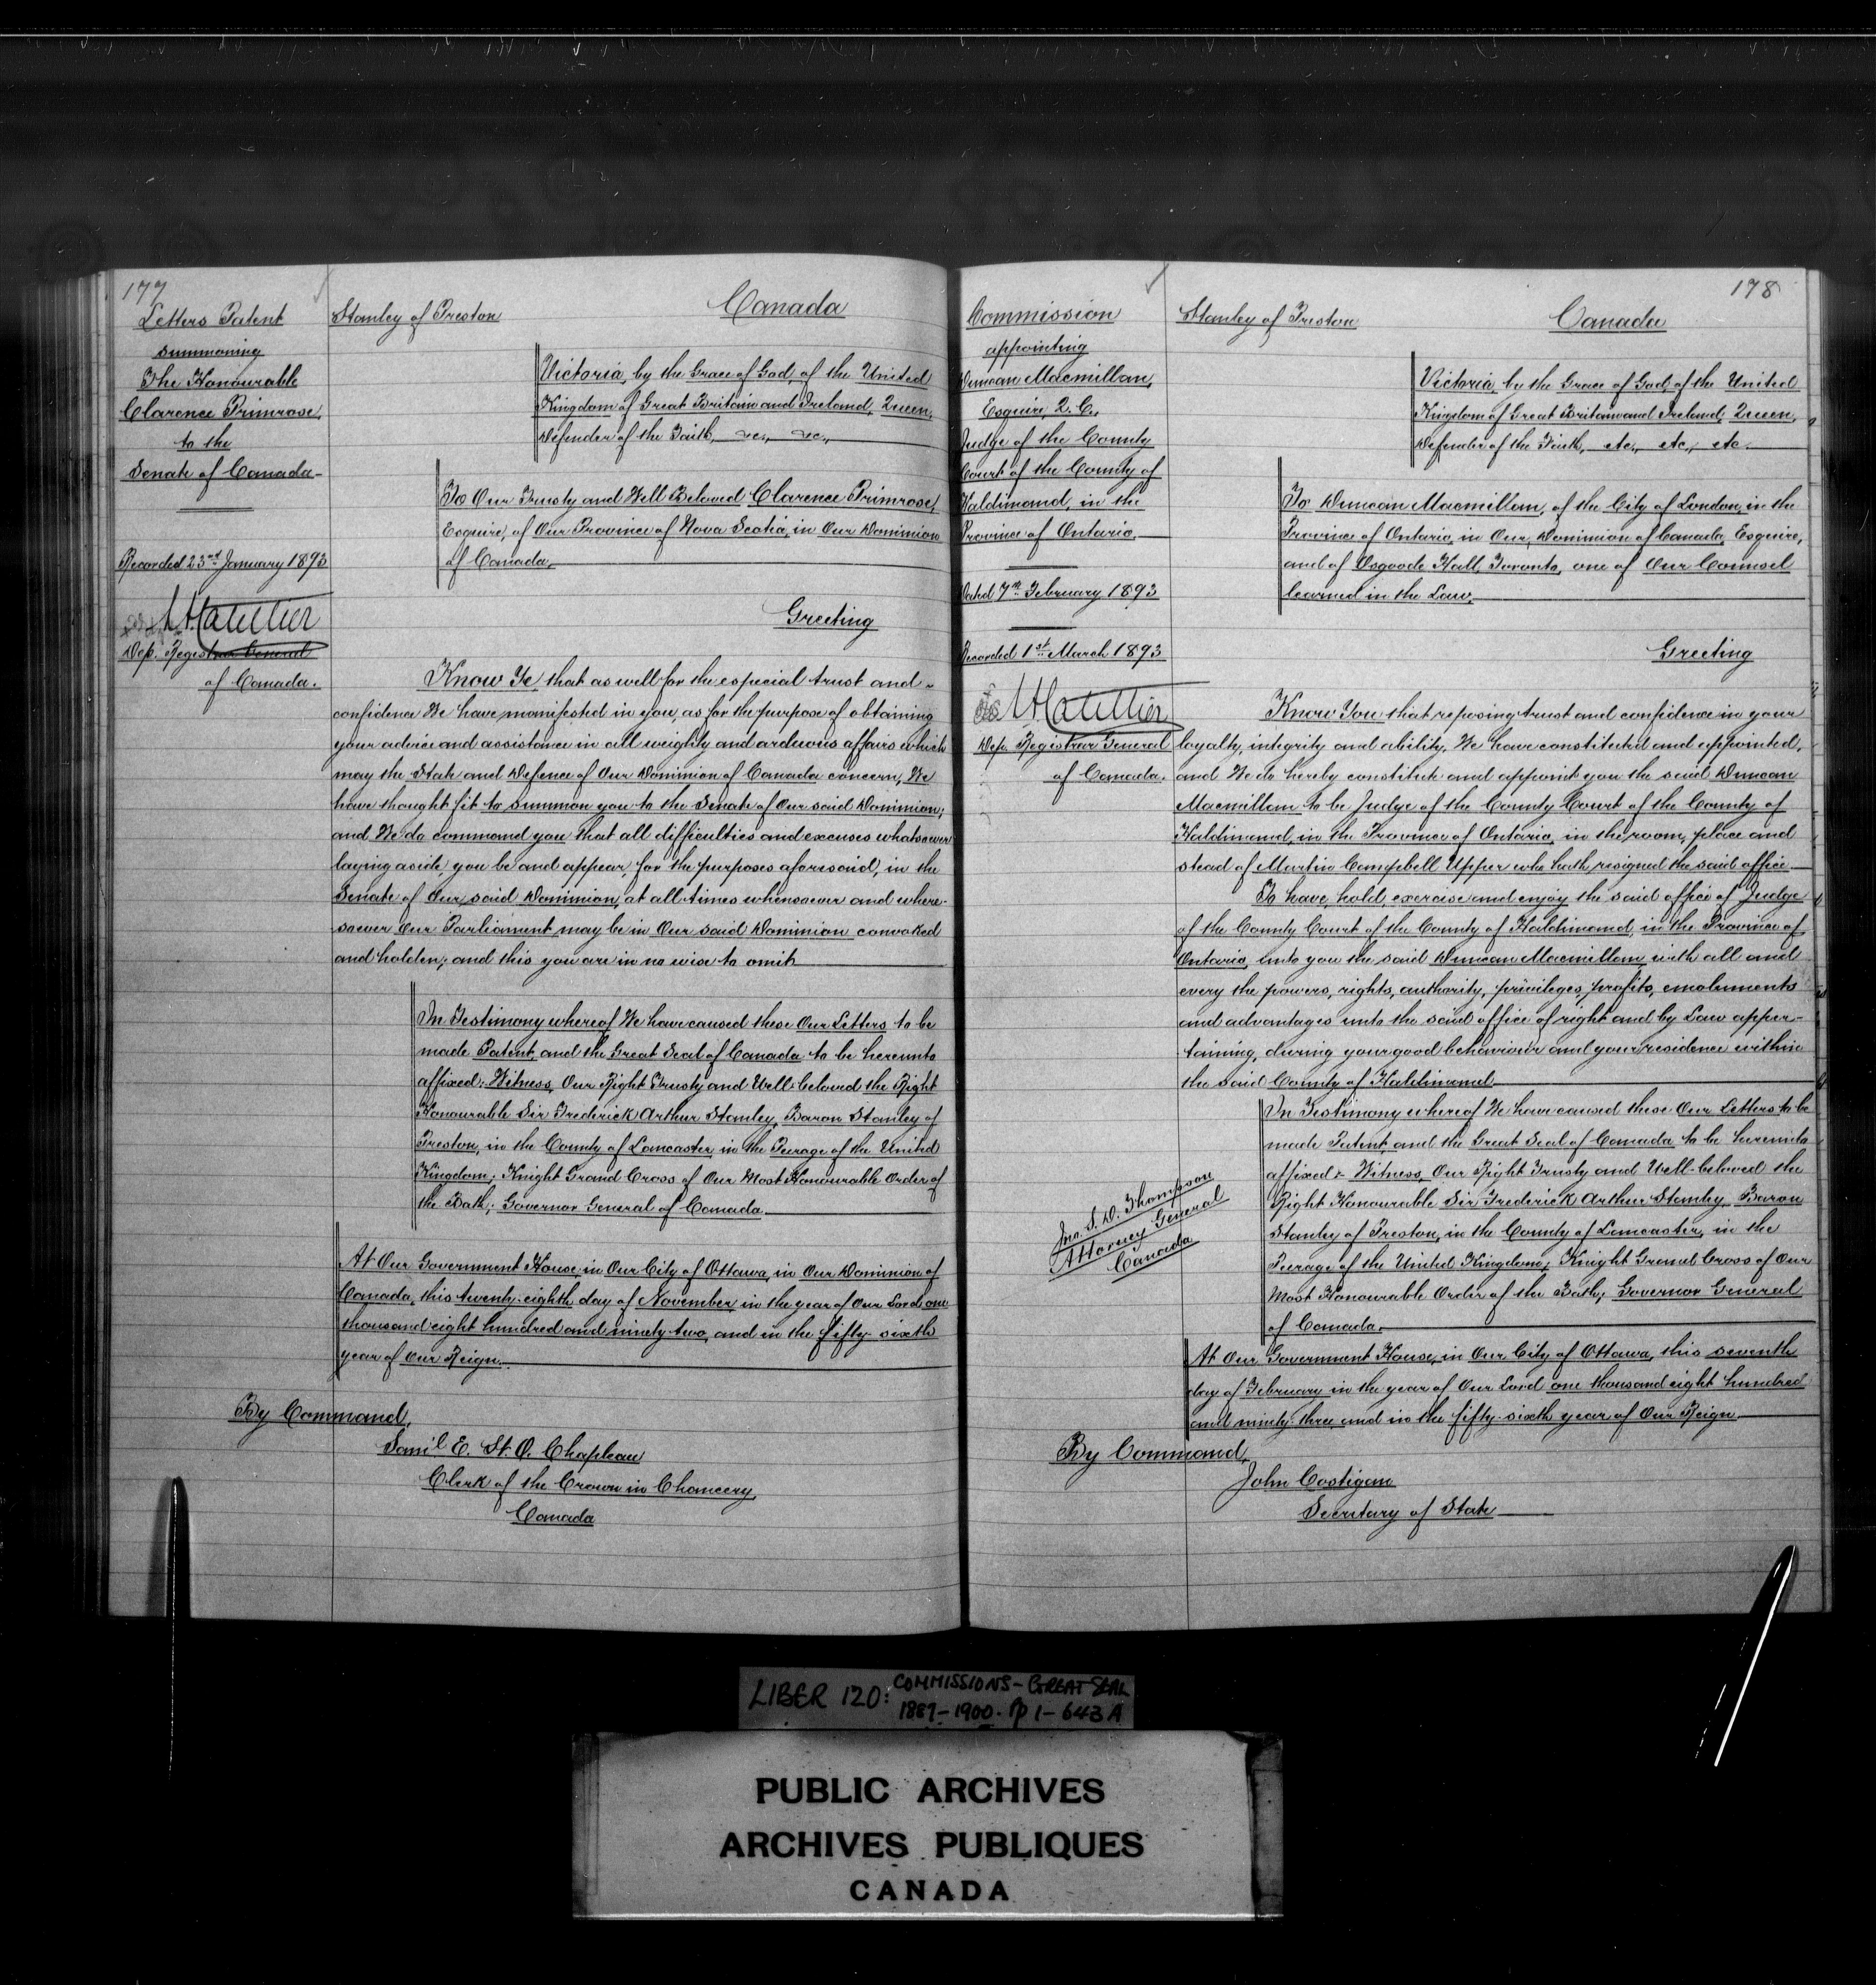 177
Letters Patent
summoning
The Honourable
Clarence Primrose,
to the
Senate of Canada
Recorded 23rd January 1893
Dep. Registrar General
of Canada.
Stanley of Preston
Canada
Victoria, by the Grace of God, of the United
Kingdom of Great Britain and Ireland, Queen,
Defender of the Faith, &c., &c.,
To Our Trusty and Well Beloved Clarence Primrose,
Esquire, of Our Province of Nova Scotia, in Our Dominion
of Canada,
Greeting
Know Ye, that as well for the especial trust and
confidence We have manifested in you, as for the purpose of obtaining
your advice and assistance in all weighty and arduous affairs which
may the State and Defence of Our Dominion of Canada concern, We
have thought fit to summon you to the Senate of Our said Dominion;
and We do command you that all difficulties and excuses whatsoever
laying aside, you be and appear for the purposes aforesaid, in the
Senate of Our said Dominion, at all times whensoever and where-
soever Our Parliament may be in Our said Dominion convoked
and holden; and this you are in no wise to omit
In Testimony whereof We have caused these Our Letters to be
made Patent, and the Great Seal of Canada to be hereunto
affixed: Witness, Our Right Trusty and Well-beloved the Right
Honourable Sir Frederick Arthur Stanley, Baron Stanley of
Preston, in the County of Lancaster, in the Peerage of the United
Kingdom; Knight Grand Cross of Our Most Honourable Order of
the Bath; Governor General of Canada.
At Our Government House, in Our City of Ottawa, in Our Dominion of
Canada, this twenty-eighth day of November in the year of Our Lord one
thousand eight hundred and ninety-two, and in the fifty-sixth
year of Our Reign.
By Command,
Saml E. St. O. Chapleau
Clerk of the Crown in Chancery,
Canada
178
Commission
appointing
Duncan Macmillan,
Esquire, Q.C.,
Judge of the County
Court of the County of
Haldimand, in the
Province of Ontario.
Dated 7th February 1893
Recorded 1st March 1893
Dep. Registrar General
of Canada.
Stanley of Preston
Canada
Victoria, by the Grace of God, of the United
Kingdom of Great Britain and Ireland, Queen,
Defender of the Faith, etc., etc., etc.
To Duncan Macmillan, of the City of London, in the
Province of Ontario, in Our Dominion of Canada, Esquire,
and of Osgoode Hall, Toronto, one of Our Counsel
learned in the Law,
Greeting
Know You that reposing trust and confidence in your
loyalty, integrity and ability, We have constituted and appointed,
and We do hereby constitute and appoint you the said Duncan
Macmillan to be Judge of the County Court of the County of
Haldimand, in the Province of Ontario, in the room, place and
stead of Martin Campbell Upper who hath resigned the said office.
To have, hold, exercise and enjoy the said office of Judge
of the County Court of the County of Haldimand, in the Province of
Ontario, unto you the said Duncan Macmillan, with all and
every the powers, rights, authority, privileges, profits, emoluments
and advantages unto the said office of right and by Law apper-
taining, during your good behaviour and your residence within
the said County of Haldimand.
In Testimony whereof We have caused these Our Letters to be
made Patent, and the Great Seal of Canada to be hereunto
affixed: Witness, Our Right Trusty and Well-beloved the
Right Honourable Sir Frederick Arthur Stanley, Baron
Stanley of Preston, in the County of Lancaster, in the
Peerage of the United Kingdom; Knight Grand Cross of Our
Most Honourable Order of the Bath; Governor General
of Canada.
Jno. S. D. Thompson
Attorney General
Canada
At Our Government House, in Our City of Ottawa, this seventh
day of February in the year of Our Lord one thousand eight hundred
and ninety-three and in the fifty-sixth year of Our Reign.
By Command,
John Costigan
Secretary of State
LIBER 120: COMMISSIONS - GREAT SEAL
1887-1900. pp 1-643A
PUBLIC ARCHIVES
ARCHIVES PUBLIQUES
CANADA